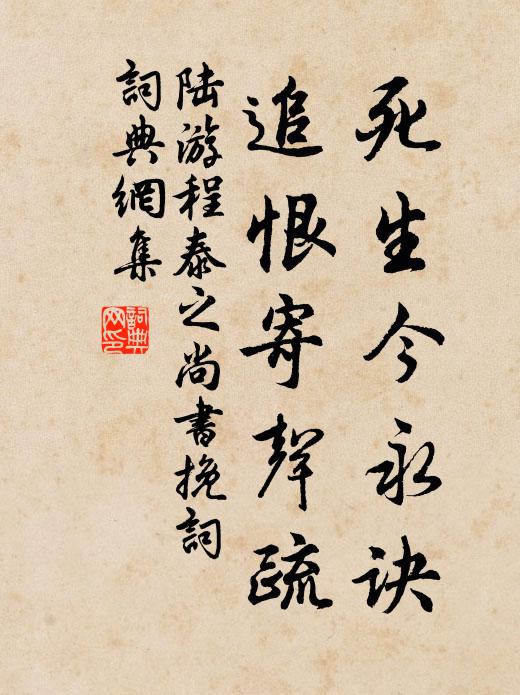 死生今永诀
追恨寄聲疏
陆游程泰之尚書挽詞
詞典網集
詞典网印